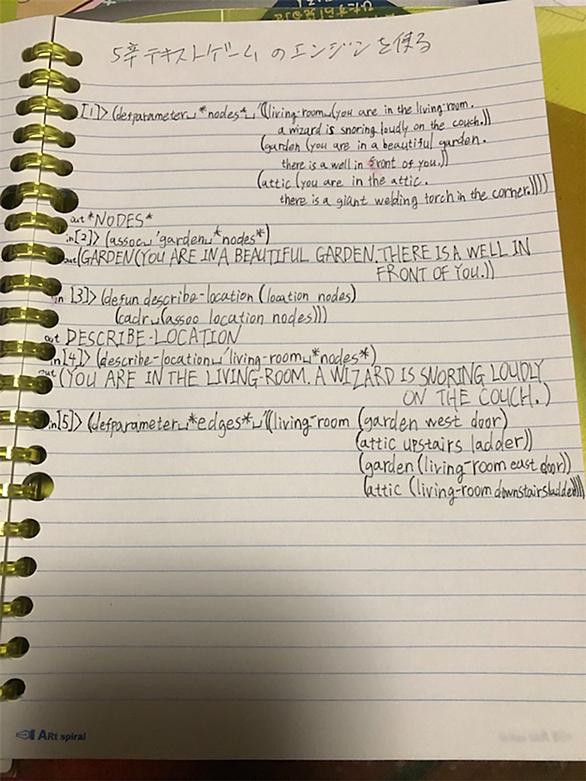 5章 テキストゲームのエンジンを使る
[1]> (defparameter␣*nodes*␣'((living-room␣(you are in the living-room.
a wizard is snoring loudly on the couch.))
(garden (you are in a beautiful garden.
there is a well in front of you.))
(attic (you are in the attic.
there is a giant welding torch in the corner.))))
out *NODES*
in[2]> (assoc␣'garden␣*nodes*)
out (GARDEN (YOU ARE IN A BEAUTIFUL GARDEN. THERE IS A WELL IN
FRONT OF YOU.))
in [3]> (defun describe-location (location nodes)
(cadr␣(assoc location nodes)))
out DESCRIBE-LOCATION
in[4]> (describe-location␣'living-room␣*nodes*)
out (YOU ARE IN THE LIVING-ROOM. A WIZARD IS SNORING LOUDLY
ON THE COUCH.)
in[5]> (defparameter␣*edges*␣'((living-room (garden west door)
(attic upstairs ladder))
(garden (living-room east door))
(attic (living-room downstairs ladder))))
ARt spiral